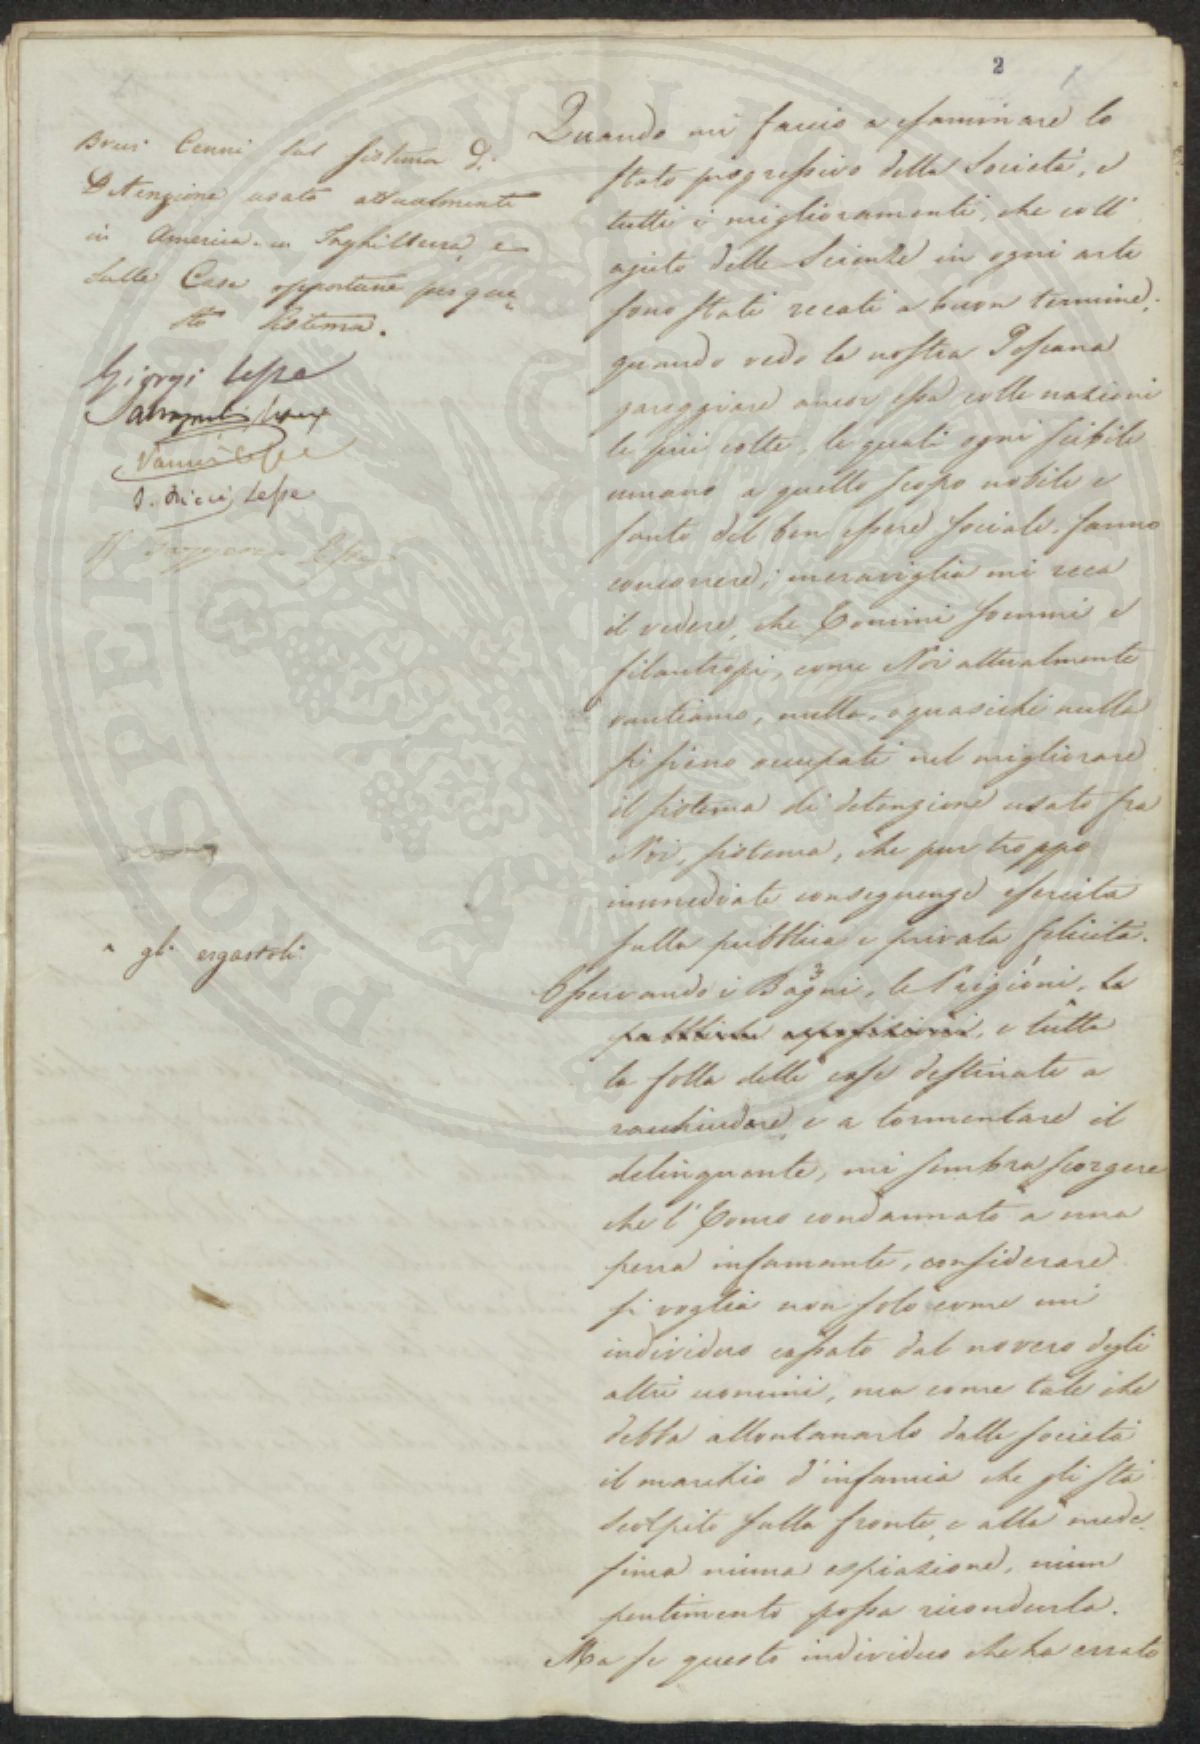 2
Brevi Cenni sul sistema di
Detenzione usato attualmente
in America. in Inghilterra, e
sulle Case opportune per que
sto sistema.
Giorgi Lesse
Vanni Lesse
D. Ricci, Lesse
Lesse
^ gli ergastoli
Quando mi faccio a esaminare lo
stato progressivo della Società, e
tutti i miglioramenti, che coll'
ajuto delle Scienze in ogni arte
sono stati recati a buon termine;
quando vedo la nostra Toscana
pareggiare ancor essa colle nazioni
le più colte, le quali ogni scibile
umano a quello scopo nobile e
santo del ben essere sociale, fanno
concorrere; meraviglia mi reca
il vedere, che Uomini sommi e
filantropi, come Noi attualmente
vantiamo, nulla, o quasichè nulla
si sieno occupati nel migliorare
il sistema di detenzione usato fra
Noi, sistema, che pur troppo
immediate conseguenze esercita
sulla pubblica e privata felicità.
Osservando i Bagni, le Prigioni, le
pubbliche, e tutta
la folla delle case destinate a
racchiudere, e a tormentare il
delinquente, mi sembra scorgere
che l'Uomo condannato a una
pena infamante, considerare
si voglia non solo come un
individuo cassato dal novero degli
altri uomini, ma come tale che
debba allontanarlo dalla società
il marchio d'infamia che gli stà
scolpito sulla fronte, e alla mede
sima niuna espiazione, niun
pentimento possa ricondurlo.
Ma se questo individuo che ha errato
PROSPERITATI PVBLICAE